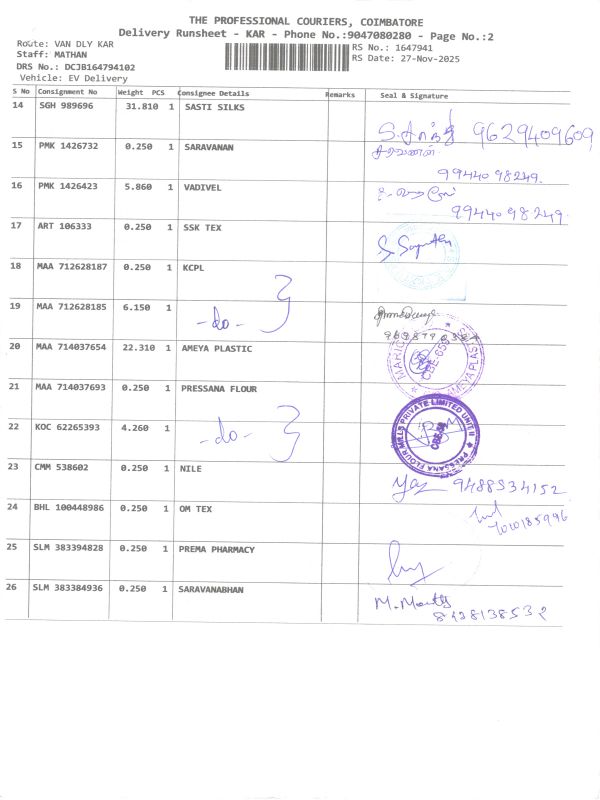 THE PROFESSIONAL COURIERS, COIMBATORE
Delivery Runsheet - KAR - Phone No.:9047080280 - Page No.:2
Route: VAN DLY KAR
Staff: MATHAN
DRS No.: DCJB164794102
Vehicle: EV Delivery
RS No.: 1647941
RS Date: 27-Nov-2025
S No Consignment No Weight PCS Consignee Details Remarks Seal & Signature
14 SGH 989696 31.810 1 SASTI SILKS
9629409609
15 PMK 1426732 0.250 1 SARAVANAN
சரவணன்
99440 98249.
16 PMK 1426423 5.860 1 VADIVEL
99440 98249
17 ART 106333 0.250 1 SSK TEX
18 MAA 712628187 0.250 1 KCPL
19 MAA 712628185 6.150 1 -do-
20 MAA 714037654 22.310 1 AMEYA PLASTIC
CBE-659
AMEYA PLASTI
21 MAA 714037693 0.250 1 PRESSANA FLOUR
PRESSANA FLOUR MILLS PRIVATE LIMITED UNIT II
22 KOC 62265393 4.260 1 -do-
23 CMM 538602 0.250 1 NILE
9488534152
24 BHL 100448986 0.250 1 OM TEX
25 SLM 383394828 0.250 1 PREMA PHARMACY
26 SLM 383384936 0.250 1 SARAVANABHAN